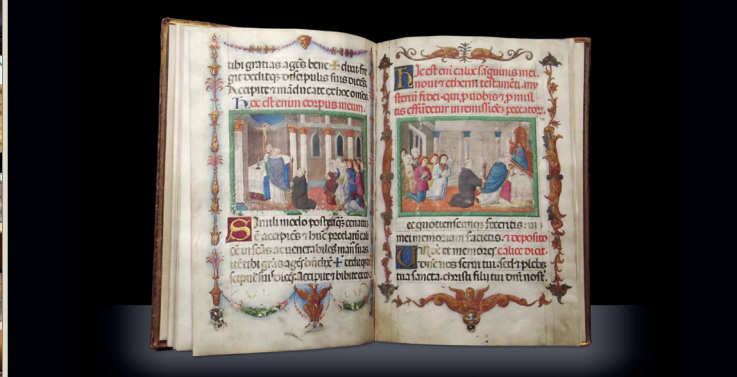 tibi gratias agēs bene ✠ dixit fre
git deditq₃ discipulis suis dicēs
Accipite et māducate ex hoc omēs
Hoc est enim corpus meum.
Simili modo postq̄
accipiēs et hūc preclarū cali
cē in sc̄as ac venerabiles manus suas
itē tibi gratias agēs ✠ deditq₃
discipulis suis dicēs. Accipite et bibite ex eo
Hic est eni calix sāguinis mei.
noui et eterni testamēti. my
steriū fidei. qui ꝓ uobis et ꝓ mul
tis effūdetur in remissiōe₃ peccator₄.
ec quotienscūq₃ feceritis. in
mei memoriam facietis. deposito
calice dicit.
serui tui. sed et plebs
tua sancta. christi filij tui dn̄i nost̄